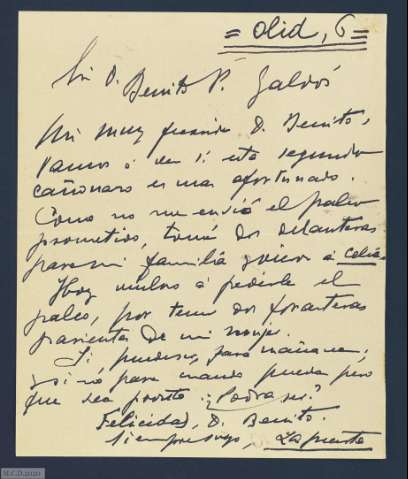 = Olid, 6 =
Sr D. Benito P. Galdós
Mi muy querido D. Benito,
Vamos á ver si este segundo
cañonazo es mas afortunado.
Como no me envió el palco
prometido, tomé dos delanteras
para mi familia y vieron á Celia
Hoy vuelvo á pedirle el
palco, por tener dos forasteras
parientas de mi mujer.
Si pudiese, para mañana,
y si no para cuando pueda pero
que sea pronto. ¿Podrá ser?
Felicidad, D. Benito.
Siempre suyo, Lapuente
M.C.D. 2020